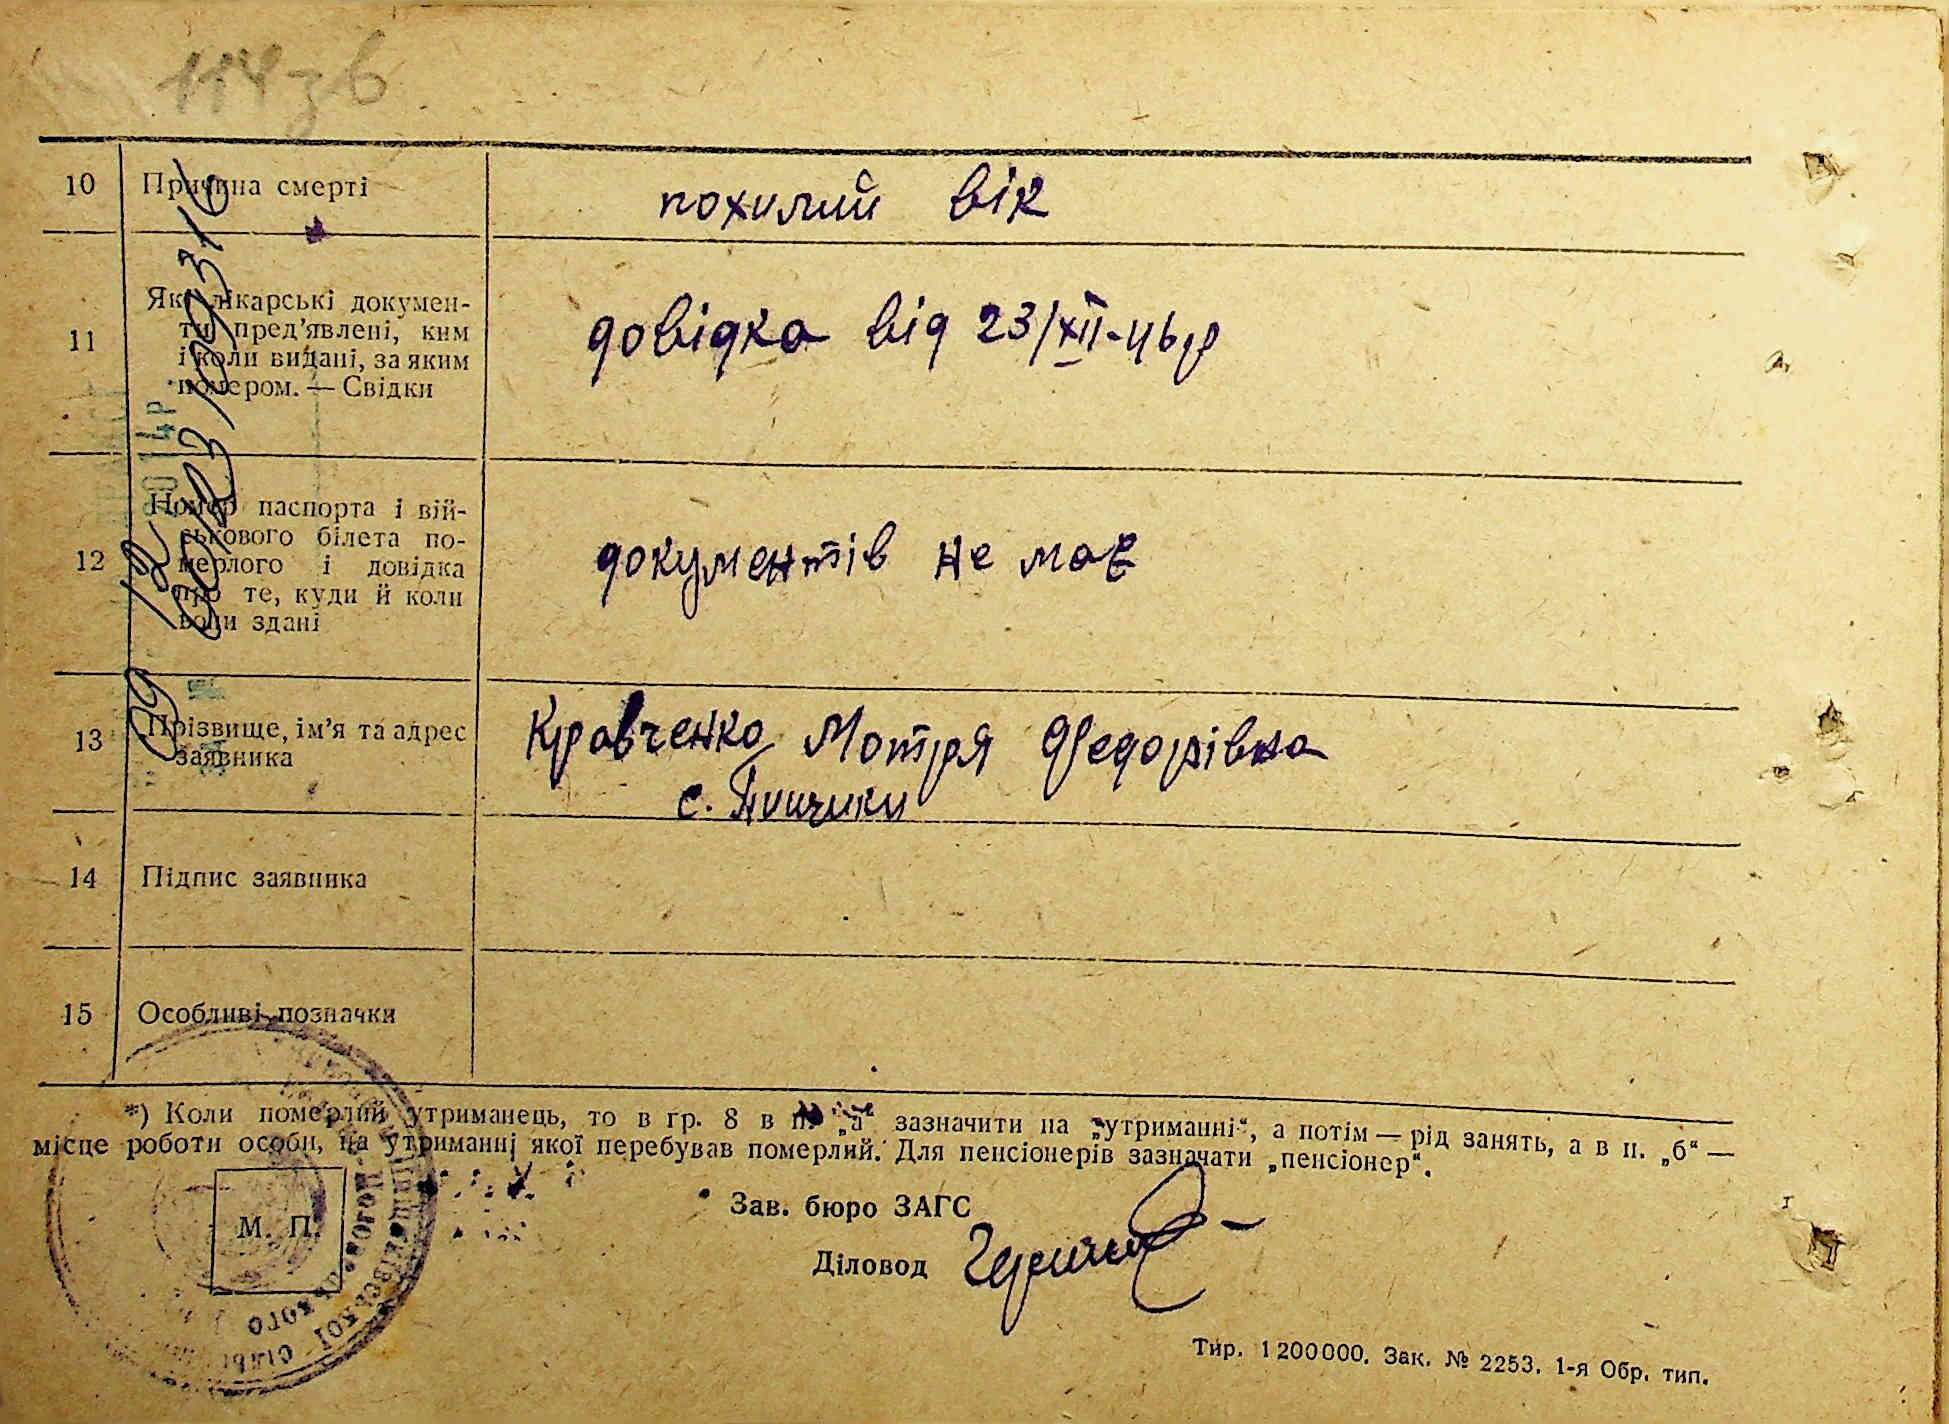 114зв
10 Причина смерті похилий вік
11 Які лікарські докумен-
ти пред’явлені, ким
і коли видані, за яким
номером. — Свідки
довідка від 23/XII-46р
12 Номер паспорта і вій-
ськового білета по-
мерлого і довідка
про те, куди й коли
вони здані
документів не має
13 Прізвище, ім’я та адрес
заявника
Кравченко Мотря Федорівна
с.
14 Підпис заявника
15 Особливі позначки
*) Коли померлий утриманець, то в гр. 8 в п. „а“ зазначити на „утриманні“, а потім — рід занять, а в п. „б“ —
місце роботи особи, на утриманні якої перебував померлий. Для пенсіонерів зазначати „пенсіонер“.
М. П.
Зав. бюро ЗАГС
Діловод
Тир. 1200000. Зак. № 2253. 1-я Обр. тип.